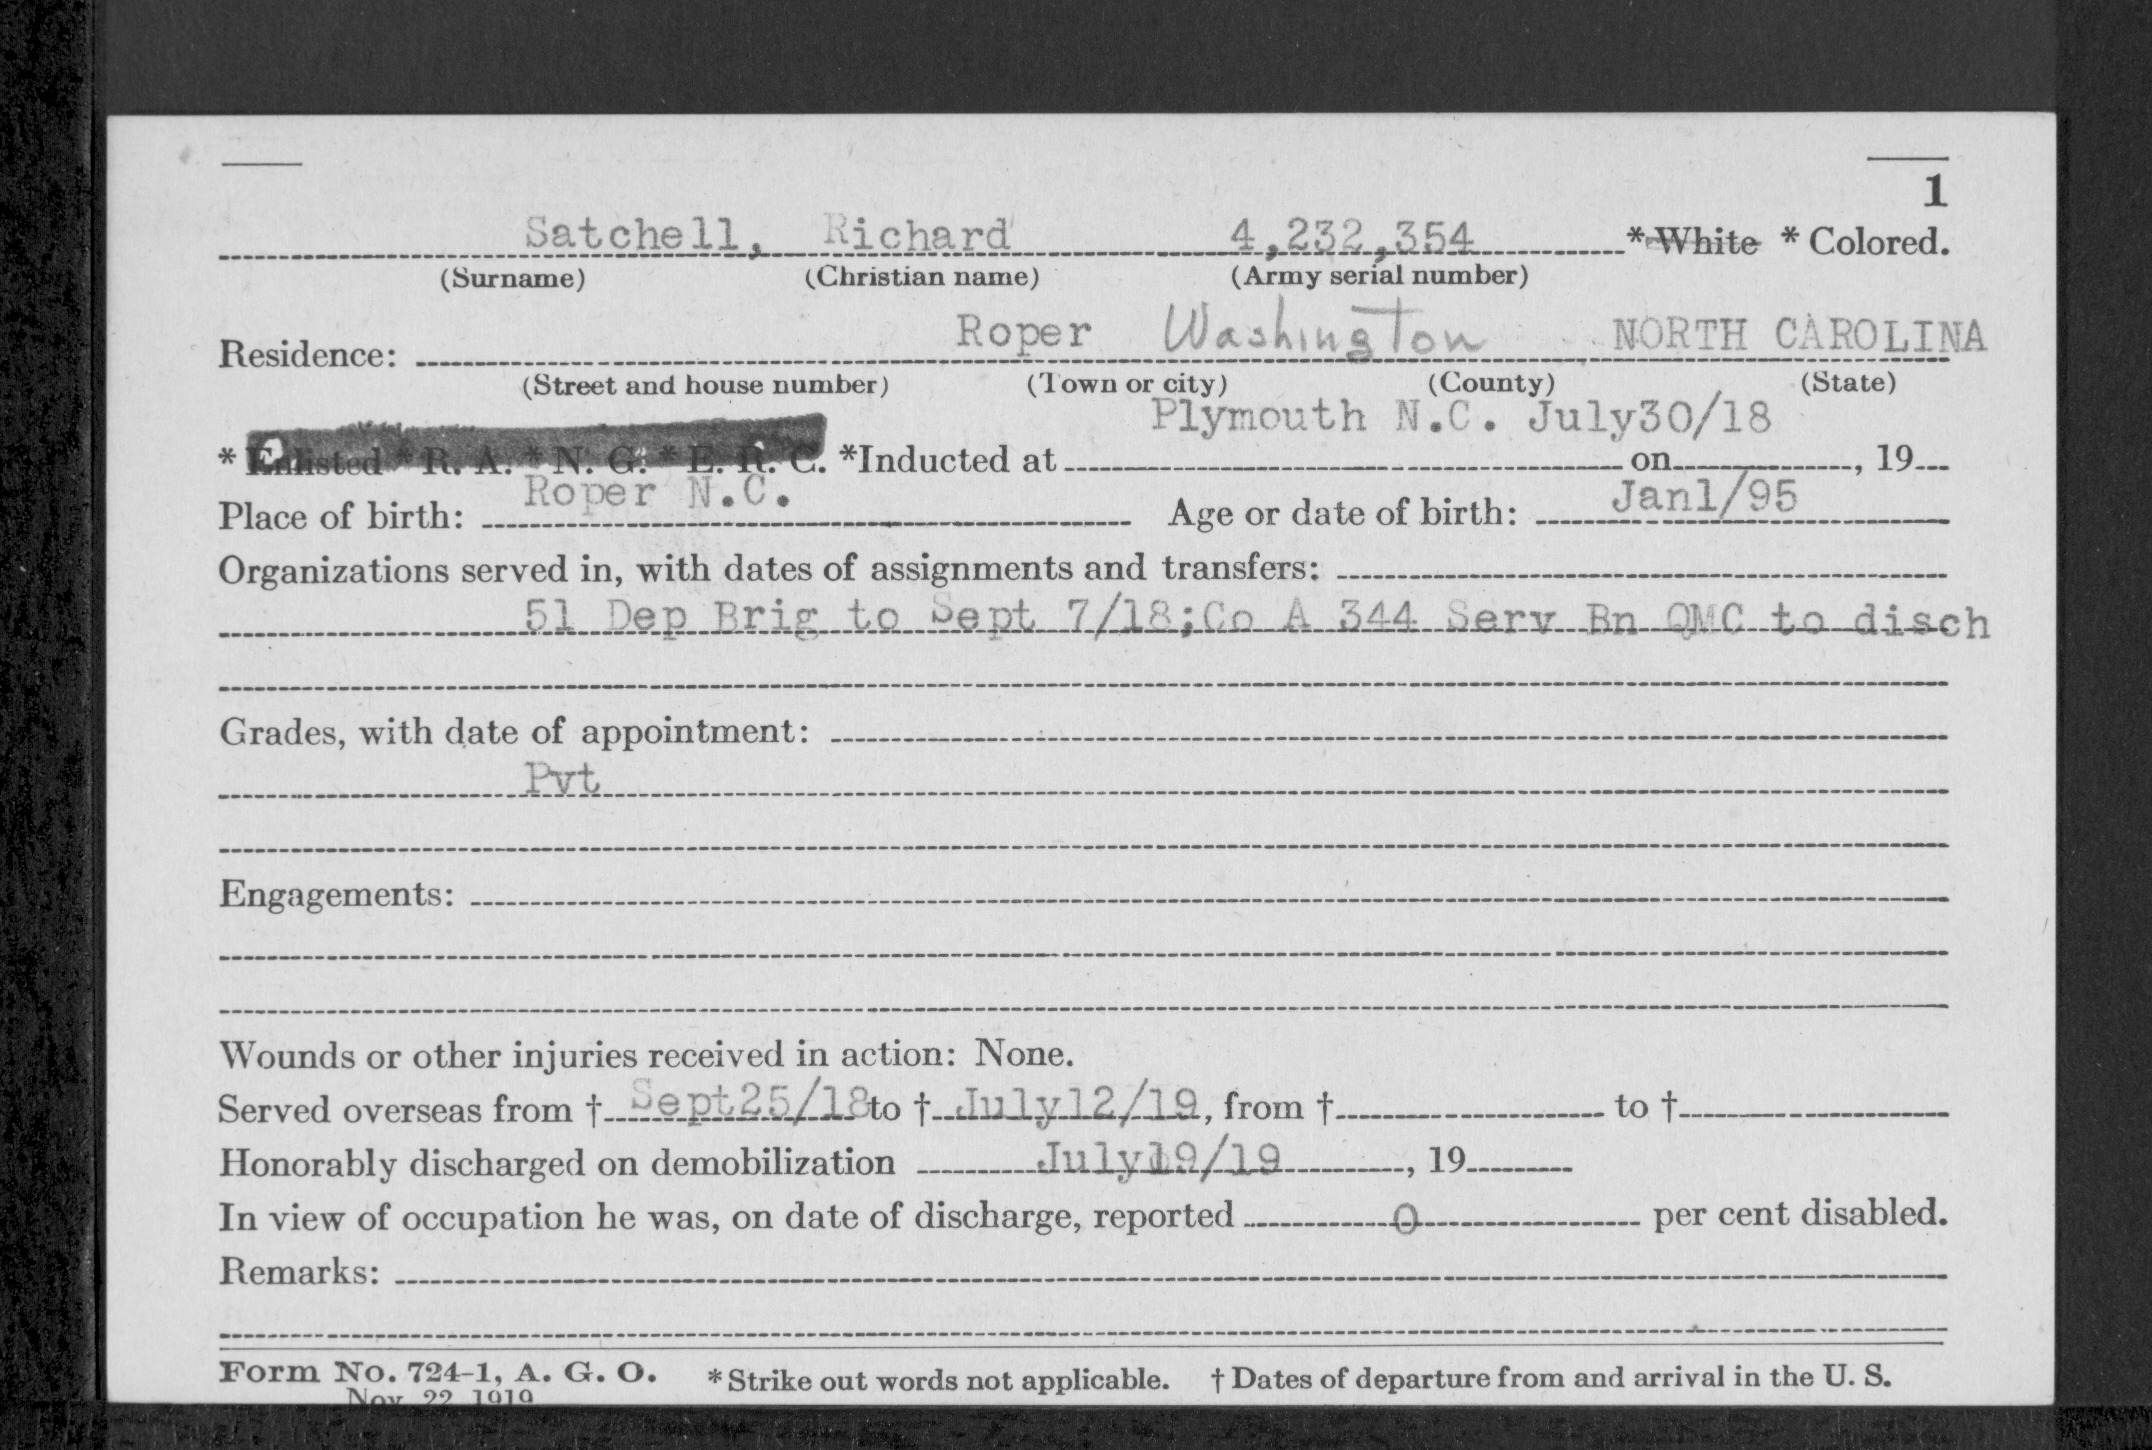 1
Satchell, Richard 4,232,354 *White *Colored.
(Surname) (Christian name) (Army serial number)
Residence: Roper Washington NORTH CAROLINA
(Street and house number) (Town or city) (County) (State)
Plymouth N.C. July30/18
*Enlisted *R. A. *N. G. *E. R. C. *Inducted at on , 19
Place of birth: Roper N.C. Age or date of birth: Jan1/95
Organizations served in, with dates of assignments and transfers:
51 Dep Brig to Sept 7/18;Co A 344 Serv Bn QMC to disch
Grades, with date of appointment:
Pvt
Engagements:
Wounds or other injuries received in action: None.
Served overseas from † Sept25/18 to † July12/19, from † to †
Honorably discharged on demobilization July19/19 , 19
In view of occupation he was, on date of discharge, reported 0 per cent disabled.
Remarks:
Form No. 724-1, A. G. O. *Strike out words not applicable. † Dates of departure from and arrival in the U. S.
Nov. 22, 1919